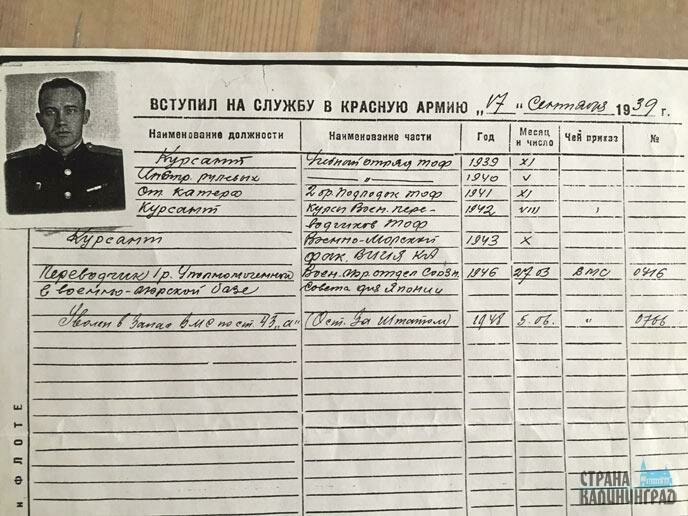 ВСТУПИЛ НА СЛУЖБУ В КРАСНУЮ АРМИЮ „17“ Сентября 1939 г.
Наименование должности Наименование части Год Месяц и число Чей приказ №
Курсант Учебный отряд ТОФ 1939 XI
Инстр. рулевых — „ — 1940 V
От. катера 2 бр. Подлодок ТОФ 1941 XI
Курсант Курсы Воен. пере- 1942 VIII
водчиков ТОФ
Курсант Военно-Морской 1943 X
фак. ВИИЯ КА
Переводчик 1р. Уполномоченного Воен. Мор. отдел Союзн. 1946 27.03 ВМС 0416
в военно-морской базе Совета для Японии
Уволен в Запас ВМС по ст. 43 „а“ (Ост. За Штатом) 1948 5.06. “ 0766
и ФЛОТЕ
СТРАНА
КАЛИНИНГРАД